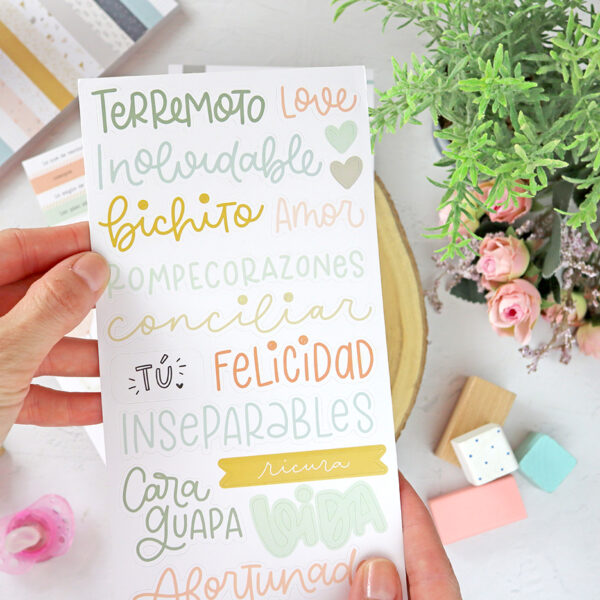 TerremoTo Love
Inolvidable
bichito Amor
ROMPECORAZONES
conciliar
TÚ FELICIDAD
INSEPARABLES
ricura
Cara guapa
Afortunad